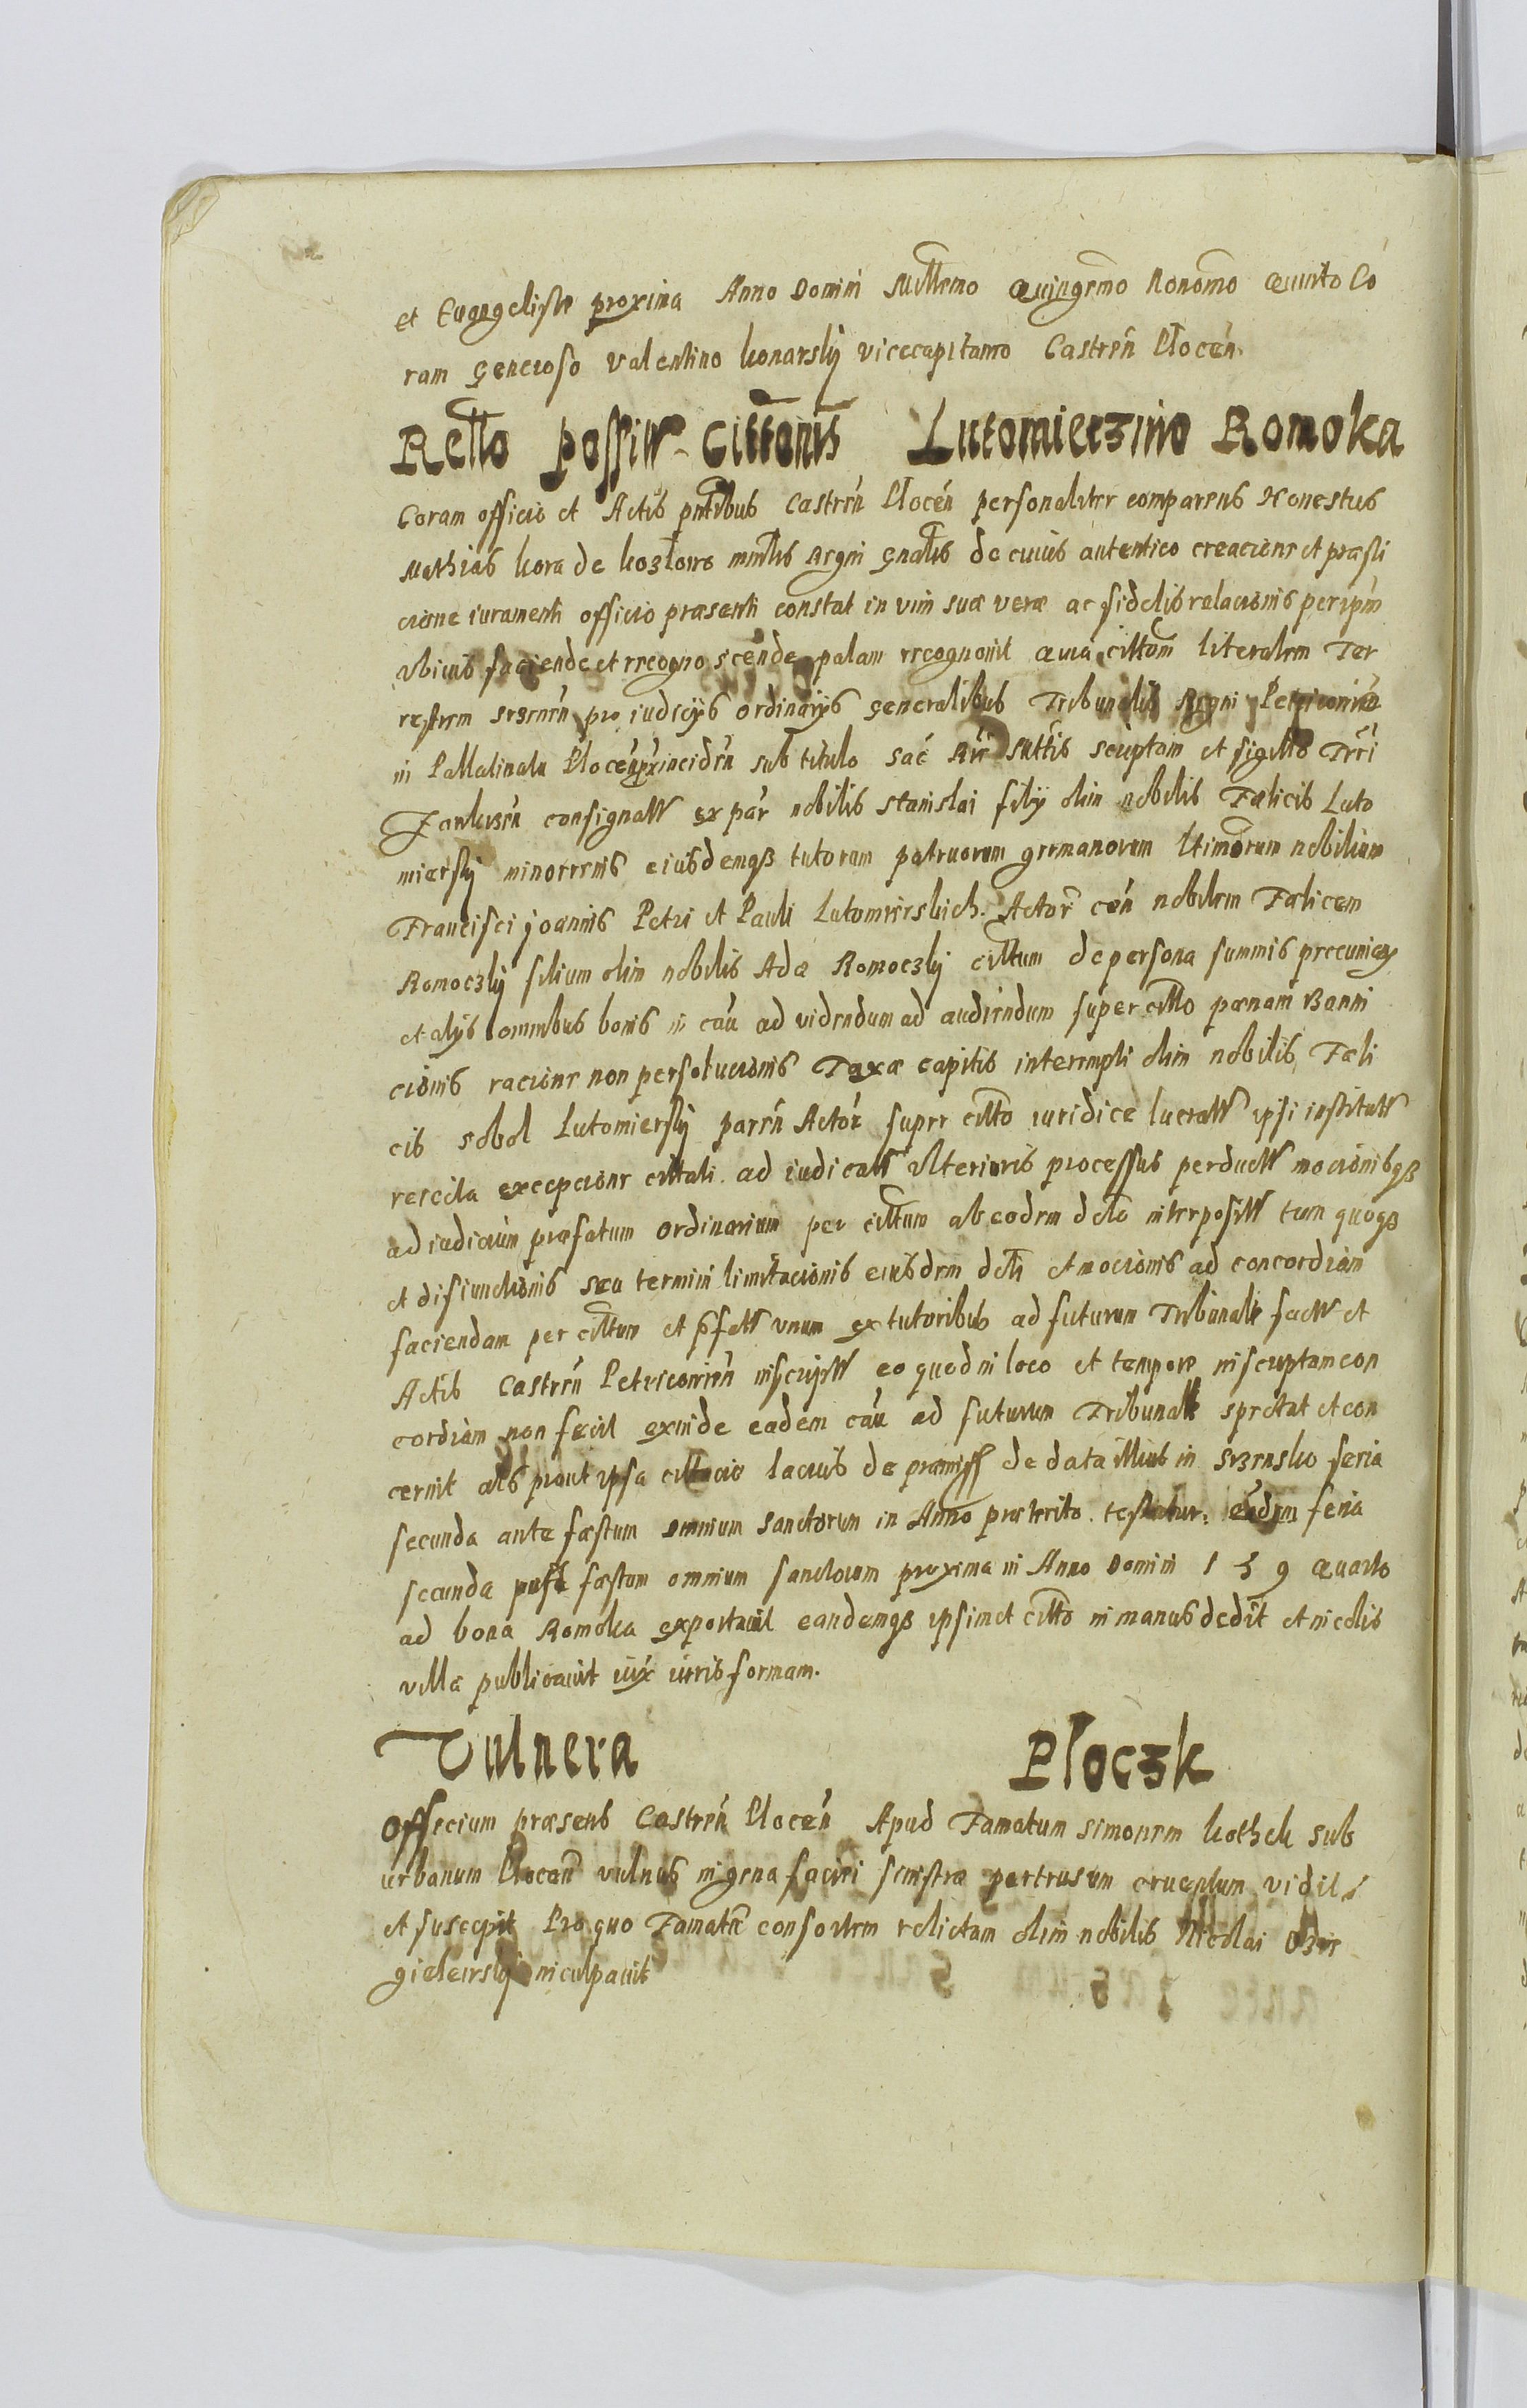 et Euangelistæ proxima Anno Domini Millemo Quingemo Nonomo Quinto Co
ram Generoso Valentino Konarskÿ Vicecapitaneo Castreñ Płoceñ.
Rello possitt. cittonis Lutomierzino Romoka
Coram officio et Actis pñtibus Castreñ Płoceñ personaliter comparens Honestus
Mathias kora de kozłowo mñtlis Regni Gñalis de cuius autentico creacione et præsti
cione iuramenti officio præsenti constat in vim suæ veræ ac fidelis relacionis per ipm̃
ubiuis faciende et recognoscende palam recognouit Quia cittom literalem Ter
restrem pro iudicÿs ordinarÿs Generalibus Tribunalis Regni
in Pallatinatu Płoceñ sub titulo Sac scriptam et sigillo Trri
consignatt ex par nobilis Stanislai filÿ olim nobilis Fælicis Luto
mierskÿ minorenis eiusdemqß tutorum patruorum germanorum ltimorum nobilium
Francisci Joannis Petri et Pauli Lutomierskich. Actor ceñ nobilem Fælicem
Romoczkÿ filium olim nobilis Adæ Romoczkÿ cittum de persona summis pecuniar
et alÿs omnibus bonis in cau ad videndum ad audiendum super citto pænam Banni
cionis racione non persolucionis Taxæ capitis interempti olim nobilis Fæli
cis Sobol Lutomierskÿ pareñ Actor super citto iuridice lucratt ipsi institutt
reiecta excepcione cittati ad iudicatt ulterioris processus perductt mocionisqß
ad iudicium præfatum ordinarium per cittum ab eodem dcto interpositt tum quoqß
et disiunctionis seu termini limitacionis eiusdem dcti et mocionis ad concordiam
faciendam per cittum et p̃fatt unum ex tutoribus ad futurum Tribunale factt et
Actis Castreñ Petricouieñ inscriptt eo quod in loco et tempore inscriptam con
cordiam non fecit exinde eadem cau ad futurum Tribunale spectat et con
cernit als prout ipsa cittacio lacius de præmiss de data illius in feria
secunda ante fæstum omnium Sanctorum in Anno præterito testatur: eadem feria
secunda post fæstum omnium Sanctorum proxima in Anno Domini 1 5 9 Quarto
ad bona Romoka exportauit eandemqß ipsimet citto in manus dedit et in eolis
villa publicauit iux iuris formam.
Vulnera Płoczk
Officium præsens Castreñ Płoceñ Apud Famatum Simonem kothek sub
urbanum Płoceñ vulnus in gena faciei sinistræ pertrusum cruentum vidit
et suscepit Pro quo Famatæ consortem relictam olim nobilis Nicolai
inculpauit